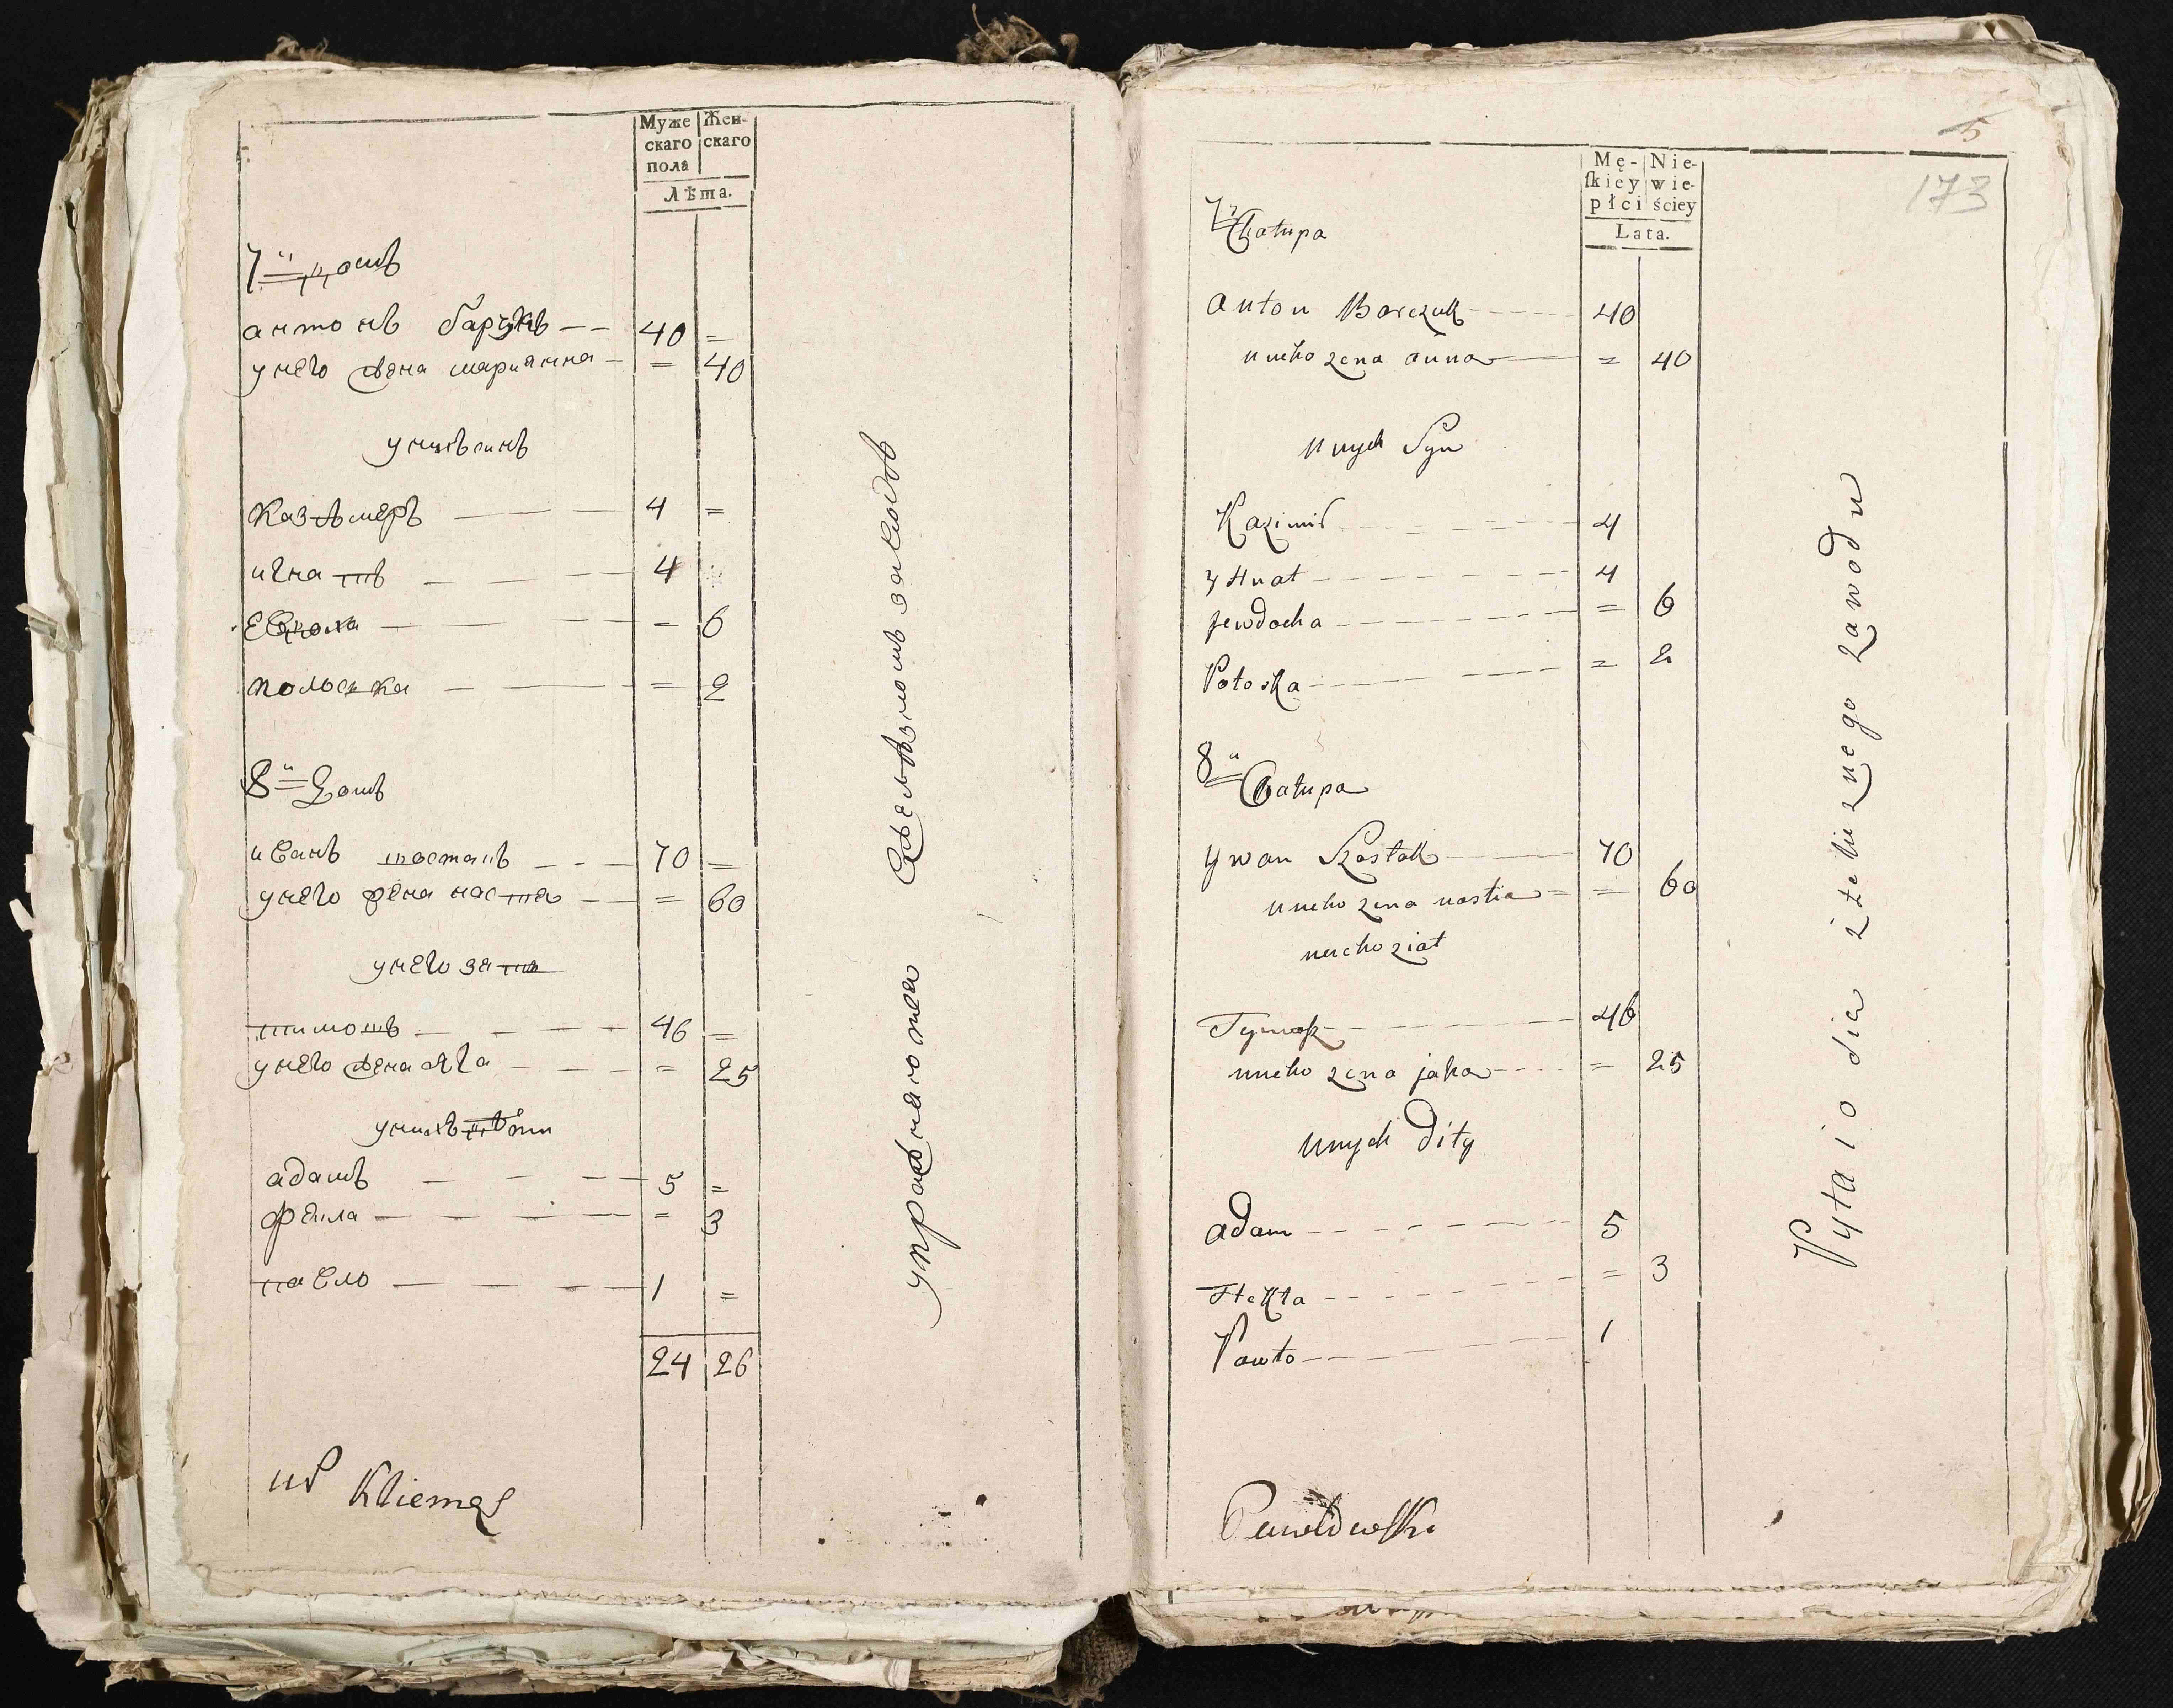 Муже
скаго
пола
Жен-
скаго
Лѣта.
7й домъ
антонъ барчукъ 40 =
унего жена марианна = 40
унихъ синъ
казѣмеръ 4 =
игнатъ 4
Евдоха = 6
полоска = 2
8й Домъ
иванъ шостакъ 70 =
унего жена настя = 60
унего зять
тимошъ 46 =
унего жена яга = 25
унихъ дѣти
адамъ 5 =
фекла = 3
павло 1 =
24 26
упражняютса
желѣзномъ заводѣ
Kliemaş
5
173
Mę-
ſkiey
płci
Nie-
wie-
ściey
Lata.
7 Chałupa
Anton Barczuk 40
uneho zena anna = 40
unych Syn
Kazimir 4
yHnat 4
jewdocha = 6
Połoska = 2
8 Chałupa
ywan Szostak 70
uneho zena nastia = = 60
uneho ziat
Tymosz 46
uneho zena jaha = 25
unych Dity
adam 5
Htekła = 3
Pawło 1
Pytaio dia
żeliznego zawodu